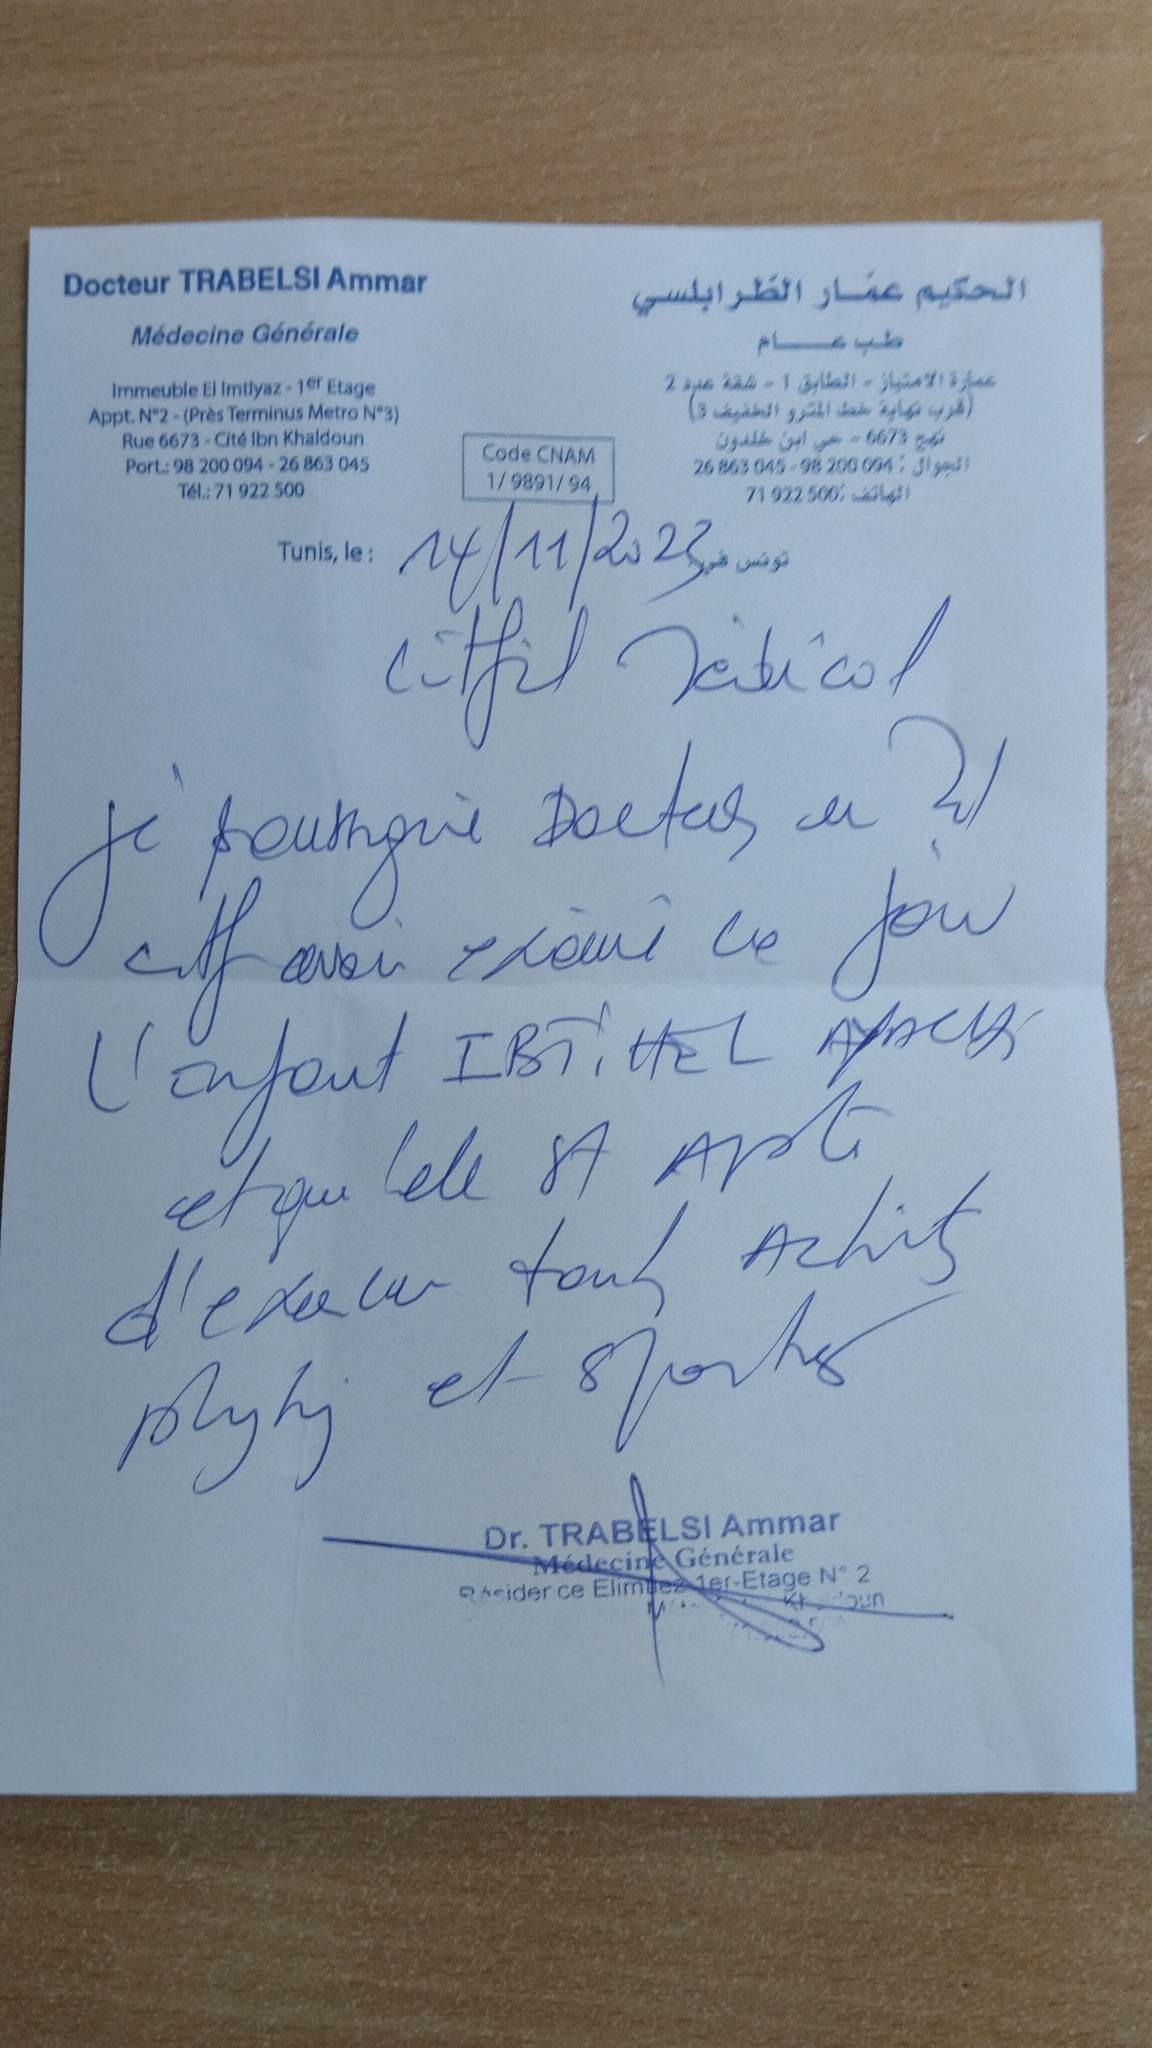 Docteur TRABELSI Ammar
Médecine Générale
Immeuble El Imtiyaz - 1er Etage
Appt. N°2 - (Près Terminus Metro N°3)
Rue 6673 - Cité Ibn Khaldoun
Port.: 98 200 094 - 26 863 045
Tél.: 71 922 500
الحكيم عمّار الطّرابلسي
طب عـــــام
عمارة الامتياز - الطابق 1 - شقة عدد 2
(قرب نهاية خط المترو الخفيف 3)
نهج 6673 - حي ابن خلدون
الجوال : 98 200 094 - 26 863 045
الهاتف : 71 922 500
Code CNAM
1/ 9891/ 94
Tunis, le : 14/11/2023 تونس في
Médical
Je soussigné Docteur en
avoir examiné ce jour
l'enfant IBTIHEL
et qu'elle est Apte
d'exercer toutes Activités
physiques et sportives
Dr. TRABELSI Ammar
Médecine Générale
1er-Etage N° 2